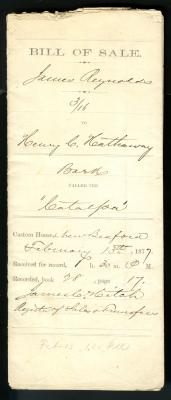 BILL OF SALE.
James Reynolds
3/16
TO
Henry C. Hathaway
Bark
CALLED THE
"Catalpa"
Custom House, New Bedford
February 13th, 1877.
Received for record, 1 h. 30 m. P M.
Recorded, book 28, page 17.
James C. Hitch
Register of Sales & Transfers